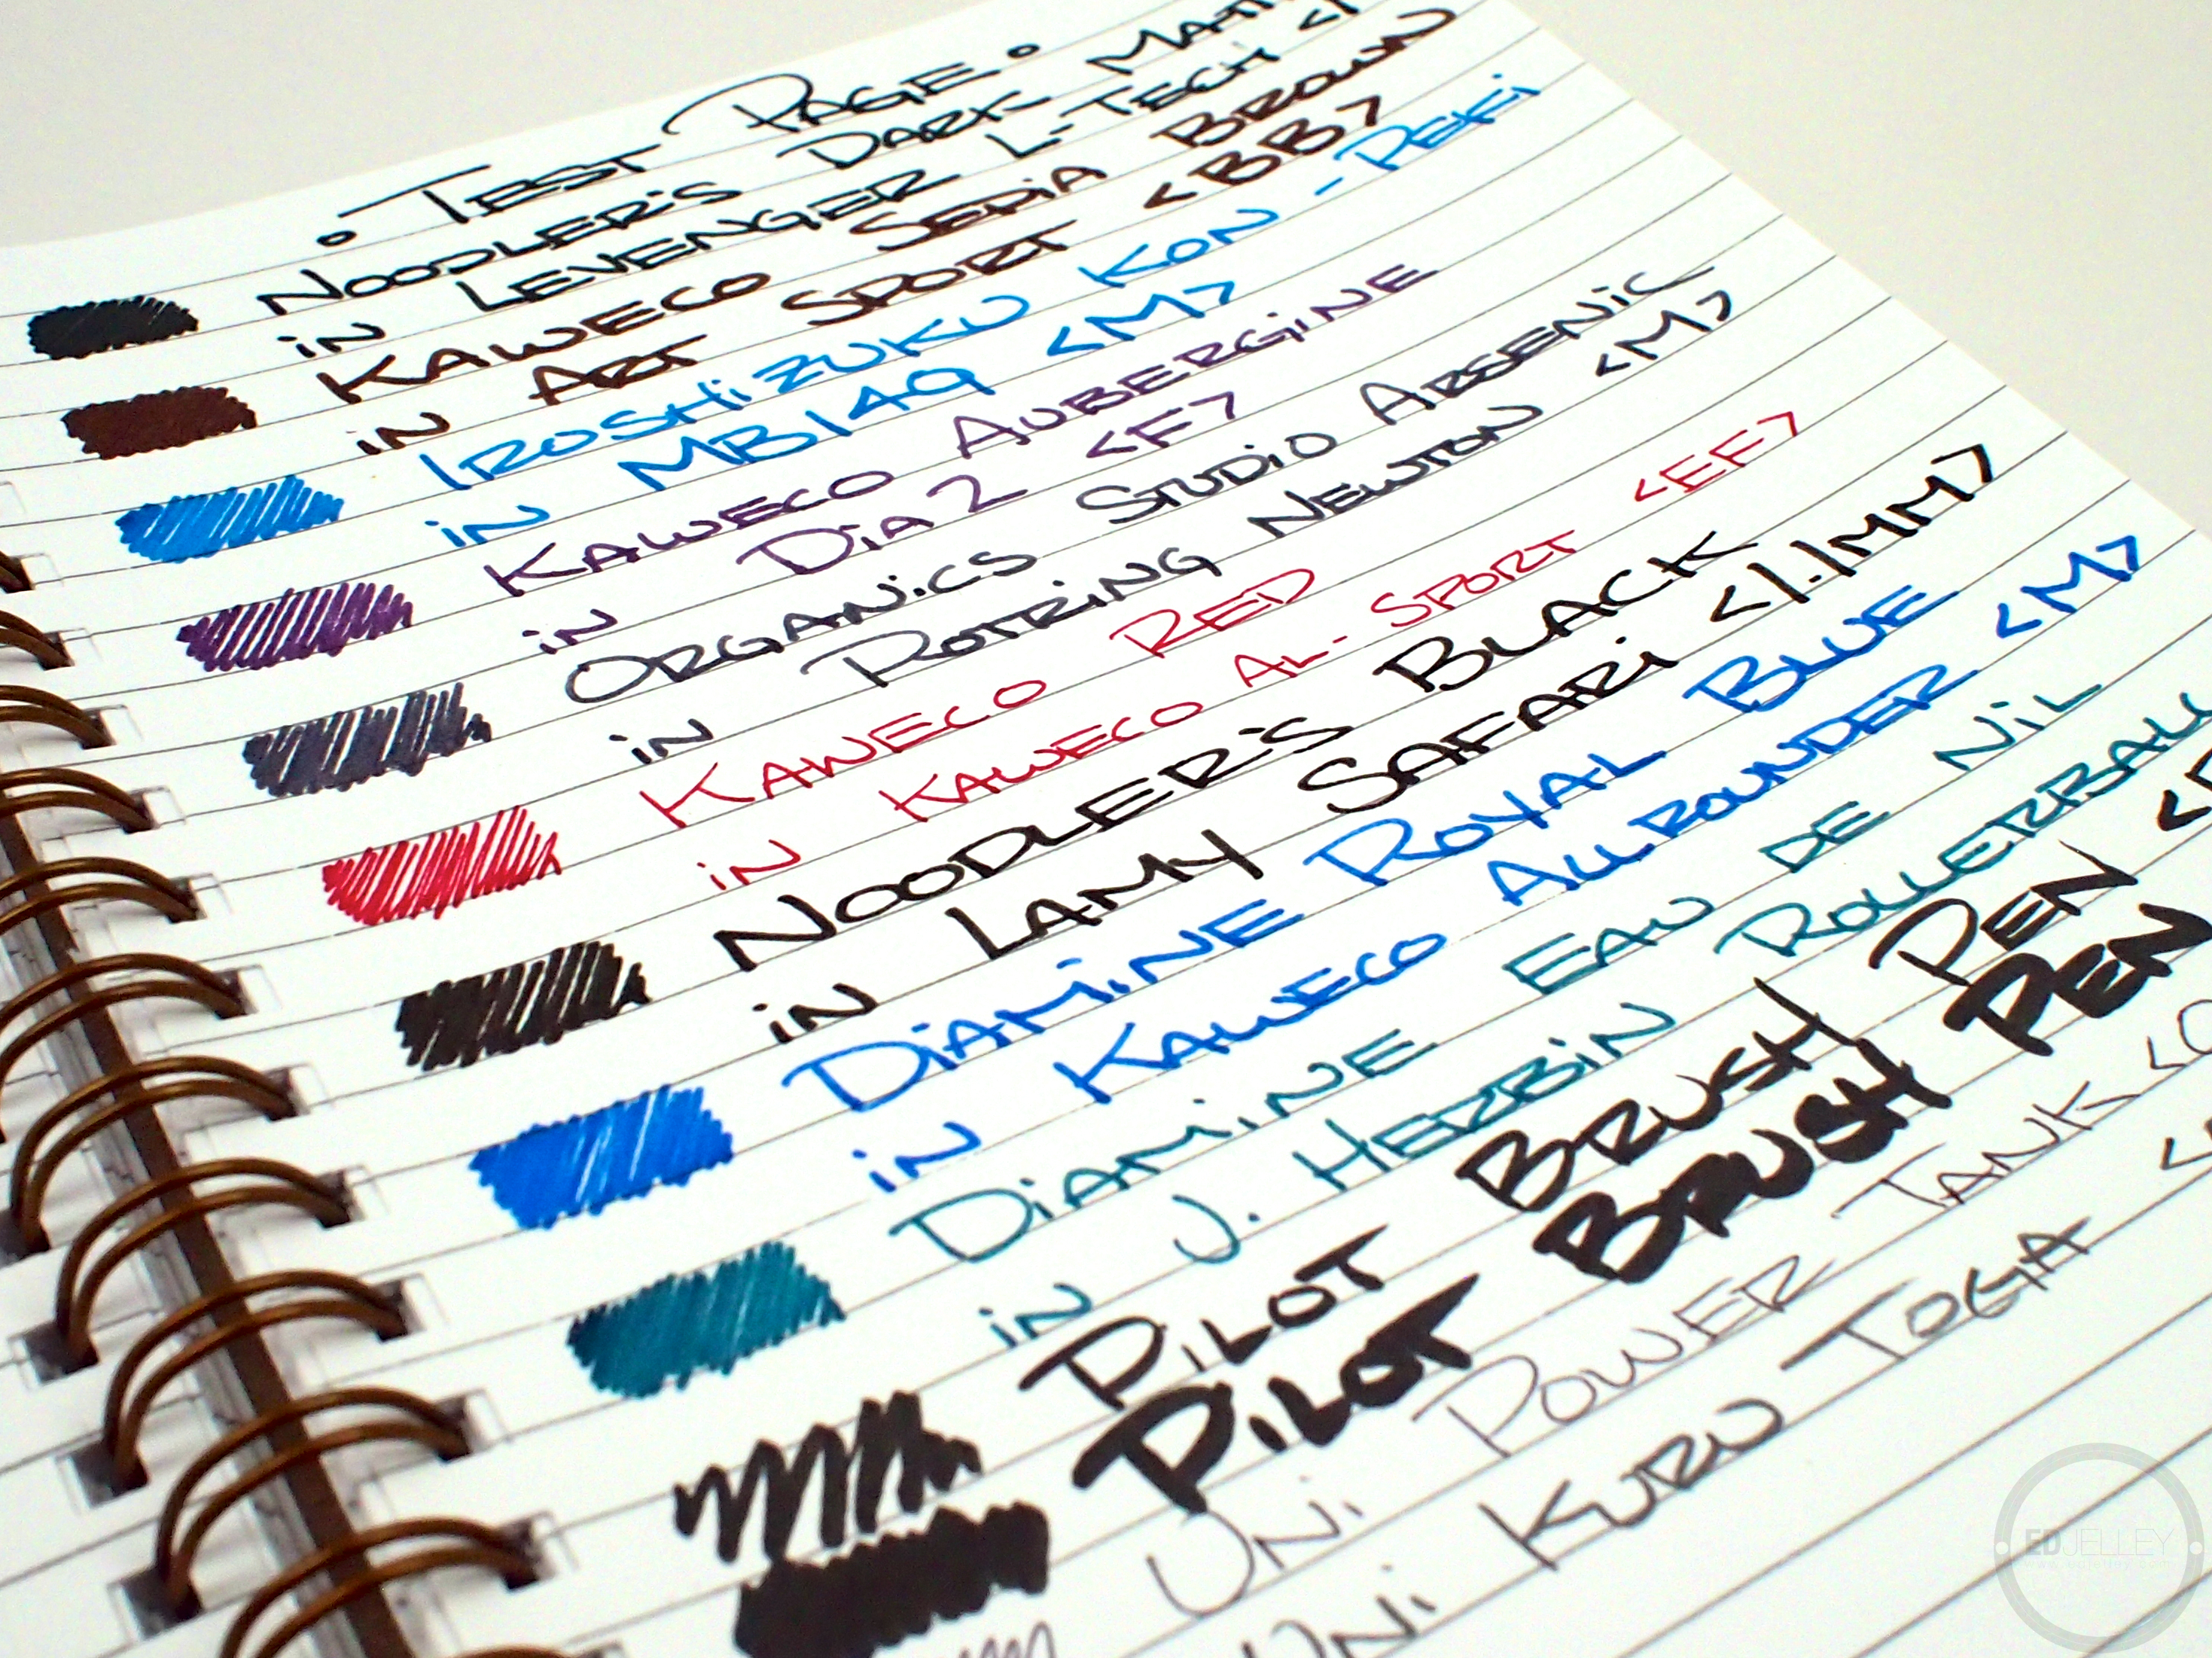 • TEST PAGE •
NOODLER'S DARK
IN LEVENGER L-TECH
KAWECO SEPIA BROWN
IN ART SPORT <BB>
IROSHIZUKU KON-PEKI
IN MB149 <M>
KAWECO AUBERGINE
IN DIA 2 <F>
ORGANICS STUDIO ARSENIC
IN ROTRING NEWTON <M>
KAWECO RED
IN KAWECO AL-SPORT <EF>
NOODLER'S BLACK
IN LAMY SAFARI <1.1MM>
DIAMINE ROYAL BLUE
IN KAWECO ALLROUNDER <M>
DIAMINE EAU DE NIL
IN J. HERBIN ROLLERBALL
PILOT BRUSH PEN
PILOT BRUSH PEN
UNI POWER TANK
UNI KURU TOGA
EDJELLEY